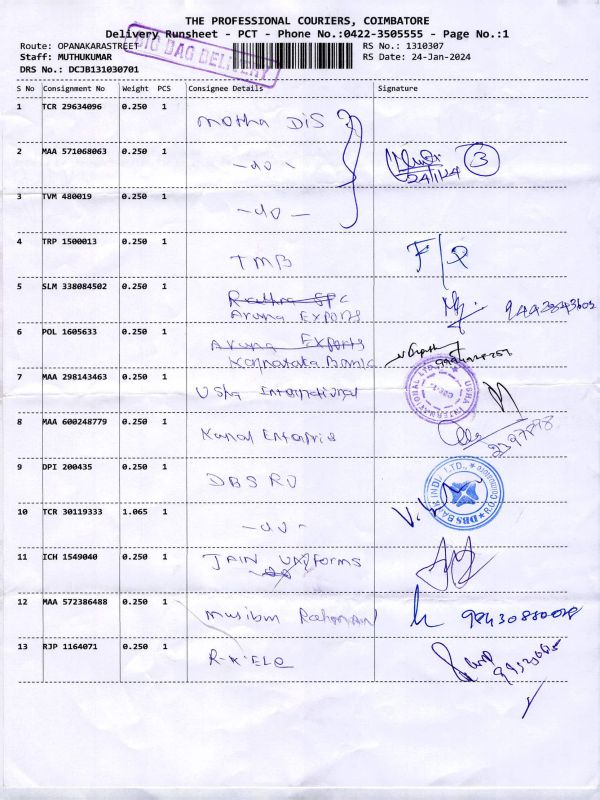 THE PROFESSIONAL COURIERS, COIMBATORE
Delivery Runsheet - PCT - Phone No.:0422-3505555 - Page No.:1
Route: OPANAKARASTREET
BIG BAG DELIVERY
RS No.: 1310307
Staff: MUTHUKUMAR
RS Date: 24-Jan-2024
DRS No.: DCJB131030701
S No Consignment No Weight PCS Consignee Details Signature
1 TCR 29634096 0.250 1 Motha DIS
2 MAA 571068063 0.250 1 -do- 24/1/24 3
3 TVM 480019 0.250 1 -do-
4 TRP 1500013 0.250 1 TMB
5 SLM 338084502 0.250 1
Aruna Exports
6 POL 1605633 0.250 1 Aruna Exports
Karnataka Bank
7 MAA 298143463 0.250 1 Usha International
USHA INTERNATIONAL LTD.
8 MAA 600248779 0.250 1
9 DPI 200435 0.250 1 DBS RV
DBS BANK INDIA LTD.,
10 TCR 30119333 1.065 1 -do-
11 ICH 1549040 0.250 1 JAIN UNIforms
12 MAA 572386488 0.250 1
13 RJP 1164071 0.250 1 R.K.Ele